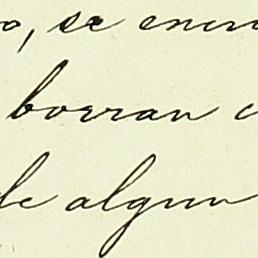 o, se encu
borran c
de algun